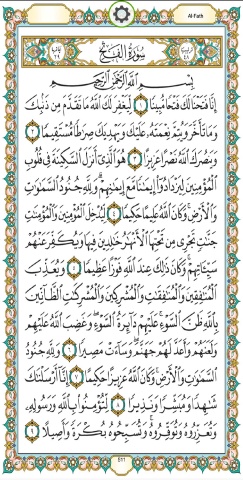 Al-Fath
سُورَةُ الفَتْحِ
بِسْمِ اللَّهِ الرَّحْمَٰنِ الرَّحِيمِ
إِنَّا فَتَحْنَا لَكَ فَتْحًا مُّبِينًا ١ لِّيَغْفِرَ لَكَ اللَّهُ مَا تَقَدَّمَ مِن ذَنۢبِكَ
وَمَا تَأَخَّرَ وَيُتِمَّ نِعْمَتَهُۥ عَلَيْكَ وَيَهْدِيَكَ صِرَٰطًا مُّسْتَقِيمًا ٢
وَيَنصُرَكَ اللَّهُ نَصْرًا عَزِيزًا ٣ هُوَ الَّذِىٓ أَنزَلَ السَّكِينَةَ فِى قُلُوبِ
الْمُؤْمِنِينَ لِيَزْدَادُوٓا۟ إِيمَٰنًا مَّعَ إِيمَٰنِهِمْ ۗ وَلِلَّهِ جُنُودُ السَّمَٰوَٰتِ
وَالْأَرْضِ ۚ وَكَانَ اللَّهُ عَلِيمًا حَكِيمًا ٤ لِّيُدْخِلَ الْمُؤْمِنِينَ وَالْمُؤْمِنَٰتِ
جَنَّٰتٍ تَجْرِى مِن تَحْتِهَا الْأَنْهَٰرُ خَٰلِدِينَ فِيهَا وَيُكَفِّرَ عَنْهُمْ
سَيِّـَٔاتِهِمْ ۚ وَكَانَ ذَٰلِكَ عِندَ اللَّهِ فَوْزًا عَظِيمًا ٥ وَيُعَذِّبَ
الْمُنَٰفِقِينَ وَالْمُنَٰفِقَٰتِ وَالْمُشْرِكِينَ وَالْمُشْرِكَٰتِ الظَّآنِّينَ
بِاللَّهِ ظَنَّ السَّوْءِ ۚ عَلَيْهِمْ دَآئِرَةُ السَّوْءِ ۖ وَغَضِبَ اللَّهُ عَلَيْهِمْ
وَلَعَنَهُمْ وَأَعَدَّ لَهُمْ جَهَنَّمَ ۖ وَسَآءَتْ مَصِيرًا ٦ وَلِلَّهِ جُنُودُ
السَّمَٰوَٰتِ وَالْأَرْضِ ۚ وَكَانَ اللَّهُ عَزِيزًا حَكِيمًا ٧ إِنَّآ أَرْسَلْنَٰكَ
شَٰهِدًا وَمُبَشِّرًا وَنَذِيرًا ٨ لِّتُؤْمِنُوا۟ بِاللَّهِ وَرَسُولِهِۦ
وَتُعَزِّرُوهُ وَتُوَقِّرُوهُ وَتُسَبِّحُوهُ بُكْرَةً وَأَصِيلًا ٩
511